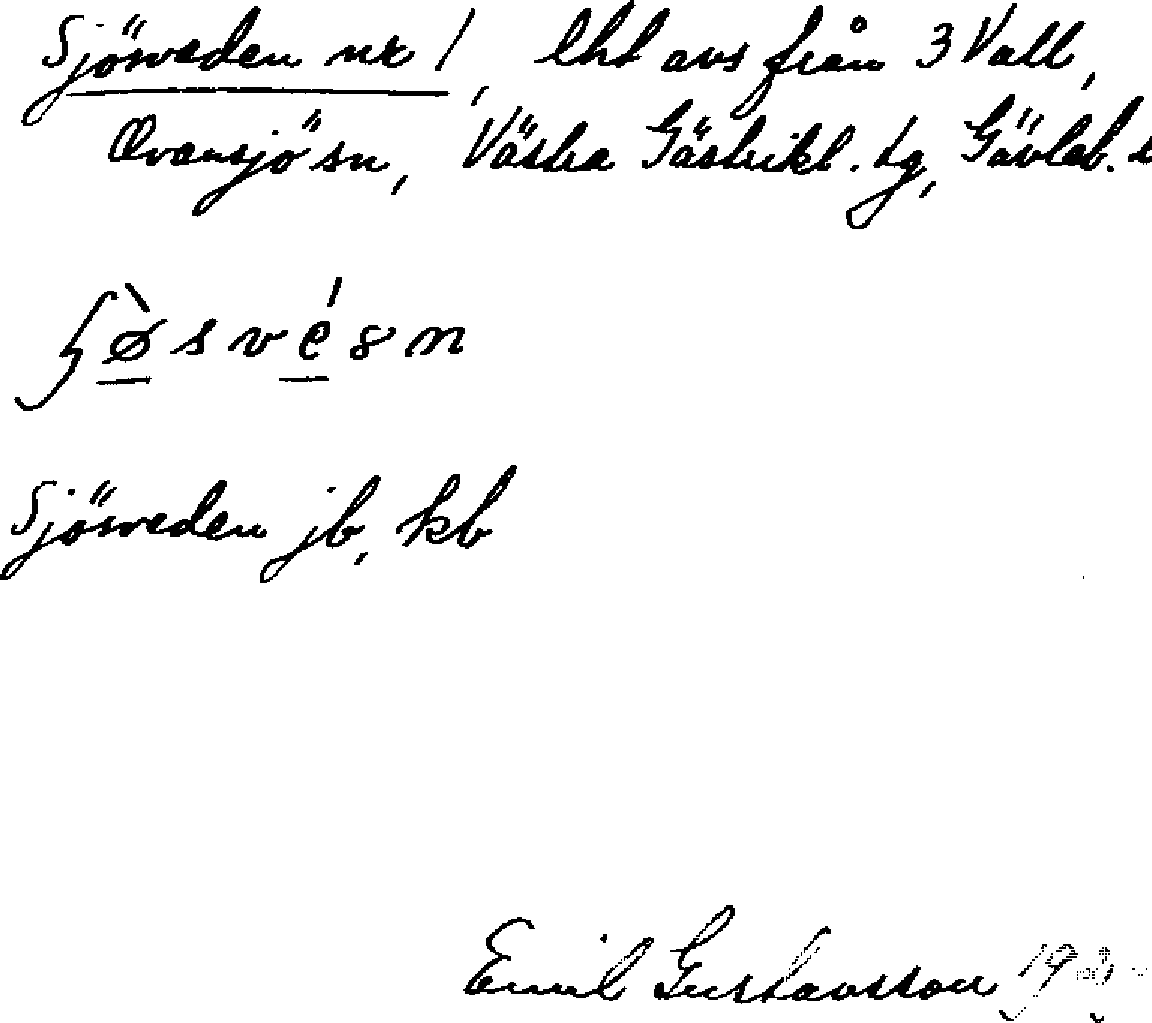 Sjösveden nr 1, lht avs från 3 Vall,
Ovansjö sn, Västra Gästrikl. tg, Gävleb. l
Sjösveden jb, kb
Emil Gustavsson